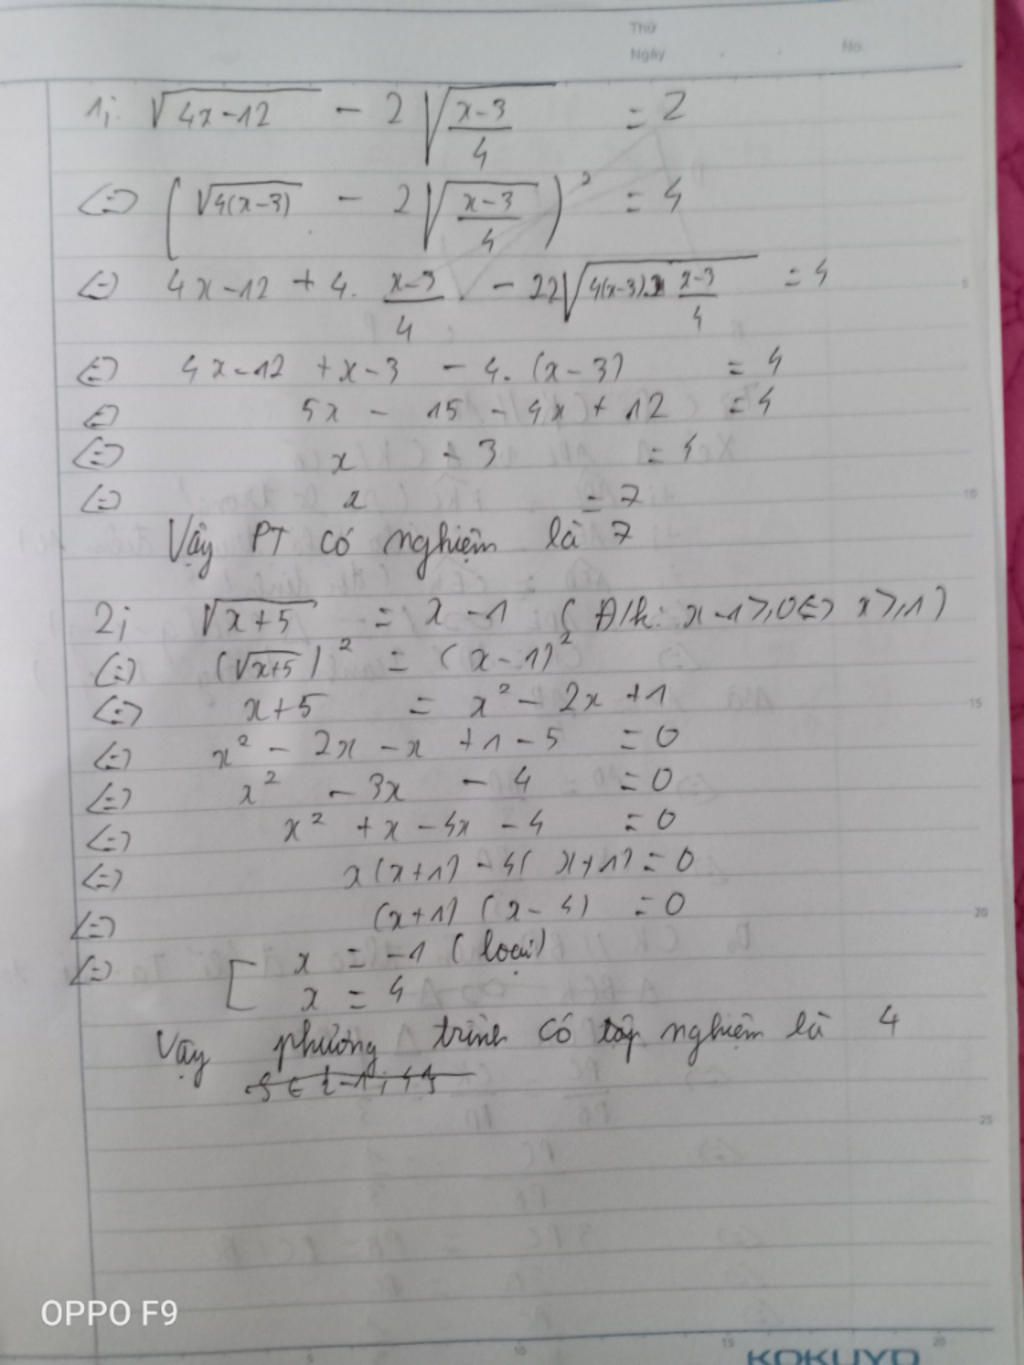 Thứ
Ngày . . No.
1; √(4x-12) - 2√((x-3)/4) = 2
<=> (√(4(x-3)) - 2√((x-3)/4))² = 4
<=> 4x-12 + 4. (x-3)/4 - 22√(4(x-3). (x-3)/4) = 4
<=> 4x-12 + x-3 - 4. (x-3) = 4
<=> 5x - 15 - 4x + 12 = 4
<=> x - 3 = 4
<=> x = 7
Vậy PT có nghiệm là 7
2; √(x+5) = x-1 ( Đ/k: x-1≥0 <=> x≥1)
<=> (√(x+5))² = (x-1)²
<=> x+5 = x² - 2x +1
<=> x² - 2x - x + 1 - 5 = 0
<=> x² - 3x - 4 = 0
<=> x² + x - 4x - 4 = 0
<=> x(x+1) - 4(x+1) = 0
<=> (x+1) (x-4) = 0
<=> [ x = -1 (loại)
x = 4
Vậy phương trình có tập nghiệm là 4
S ∈ {-1; 4}
OPPO F9
KOKUYO